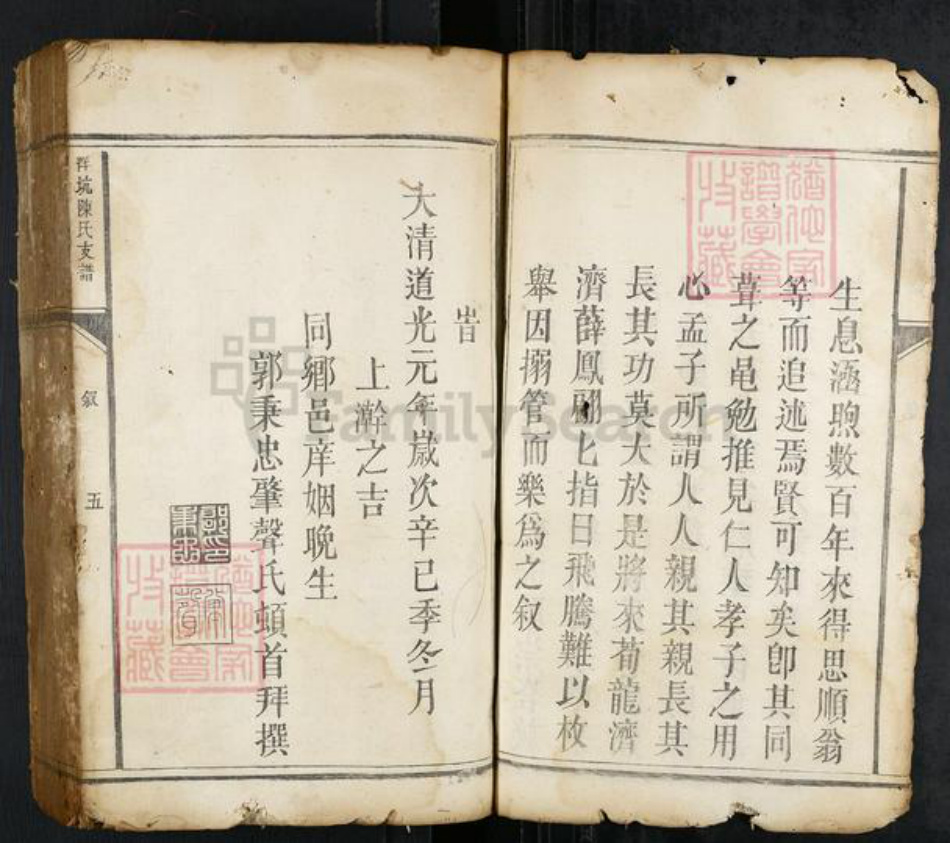 生息涵煦數百年來得思順翁
等而追述焉賢可知矣卽其同
葺之黽勉推見仁人孝子之用
心孟子所謂人人親其親長其
長其功莫大於是將來荀龍濟
濟薛鳳翩匕指日飛騰難以枚
舉因搦管而樂為之叙
旹
大清道光元年歲次辛巳季冬月
上澣之吉
同鄉邑庠姻晚生
郭秉忠肇聲氏頓首拜撰
坑陳氏支譜
叙
五
譜學會
收藏
收藏
FamilySearch